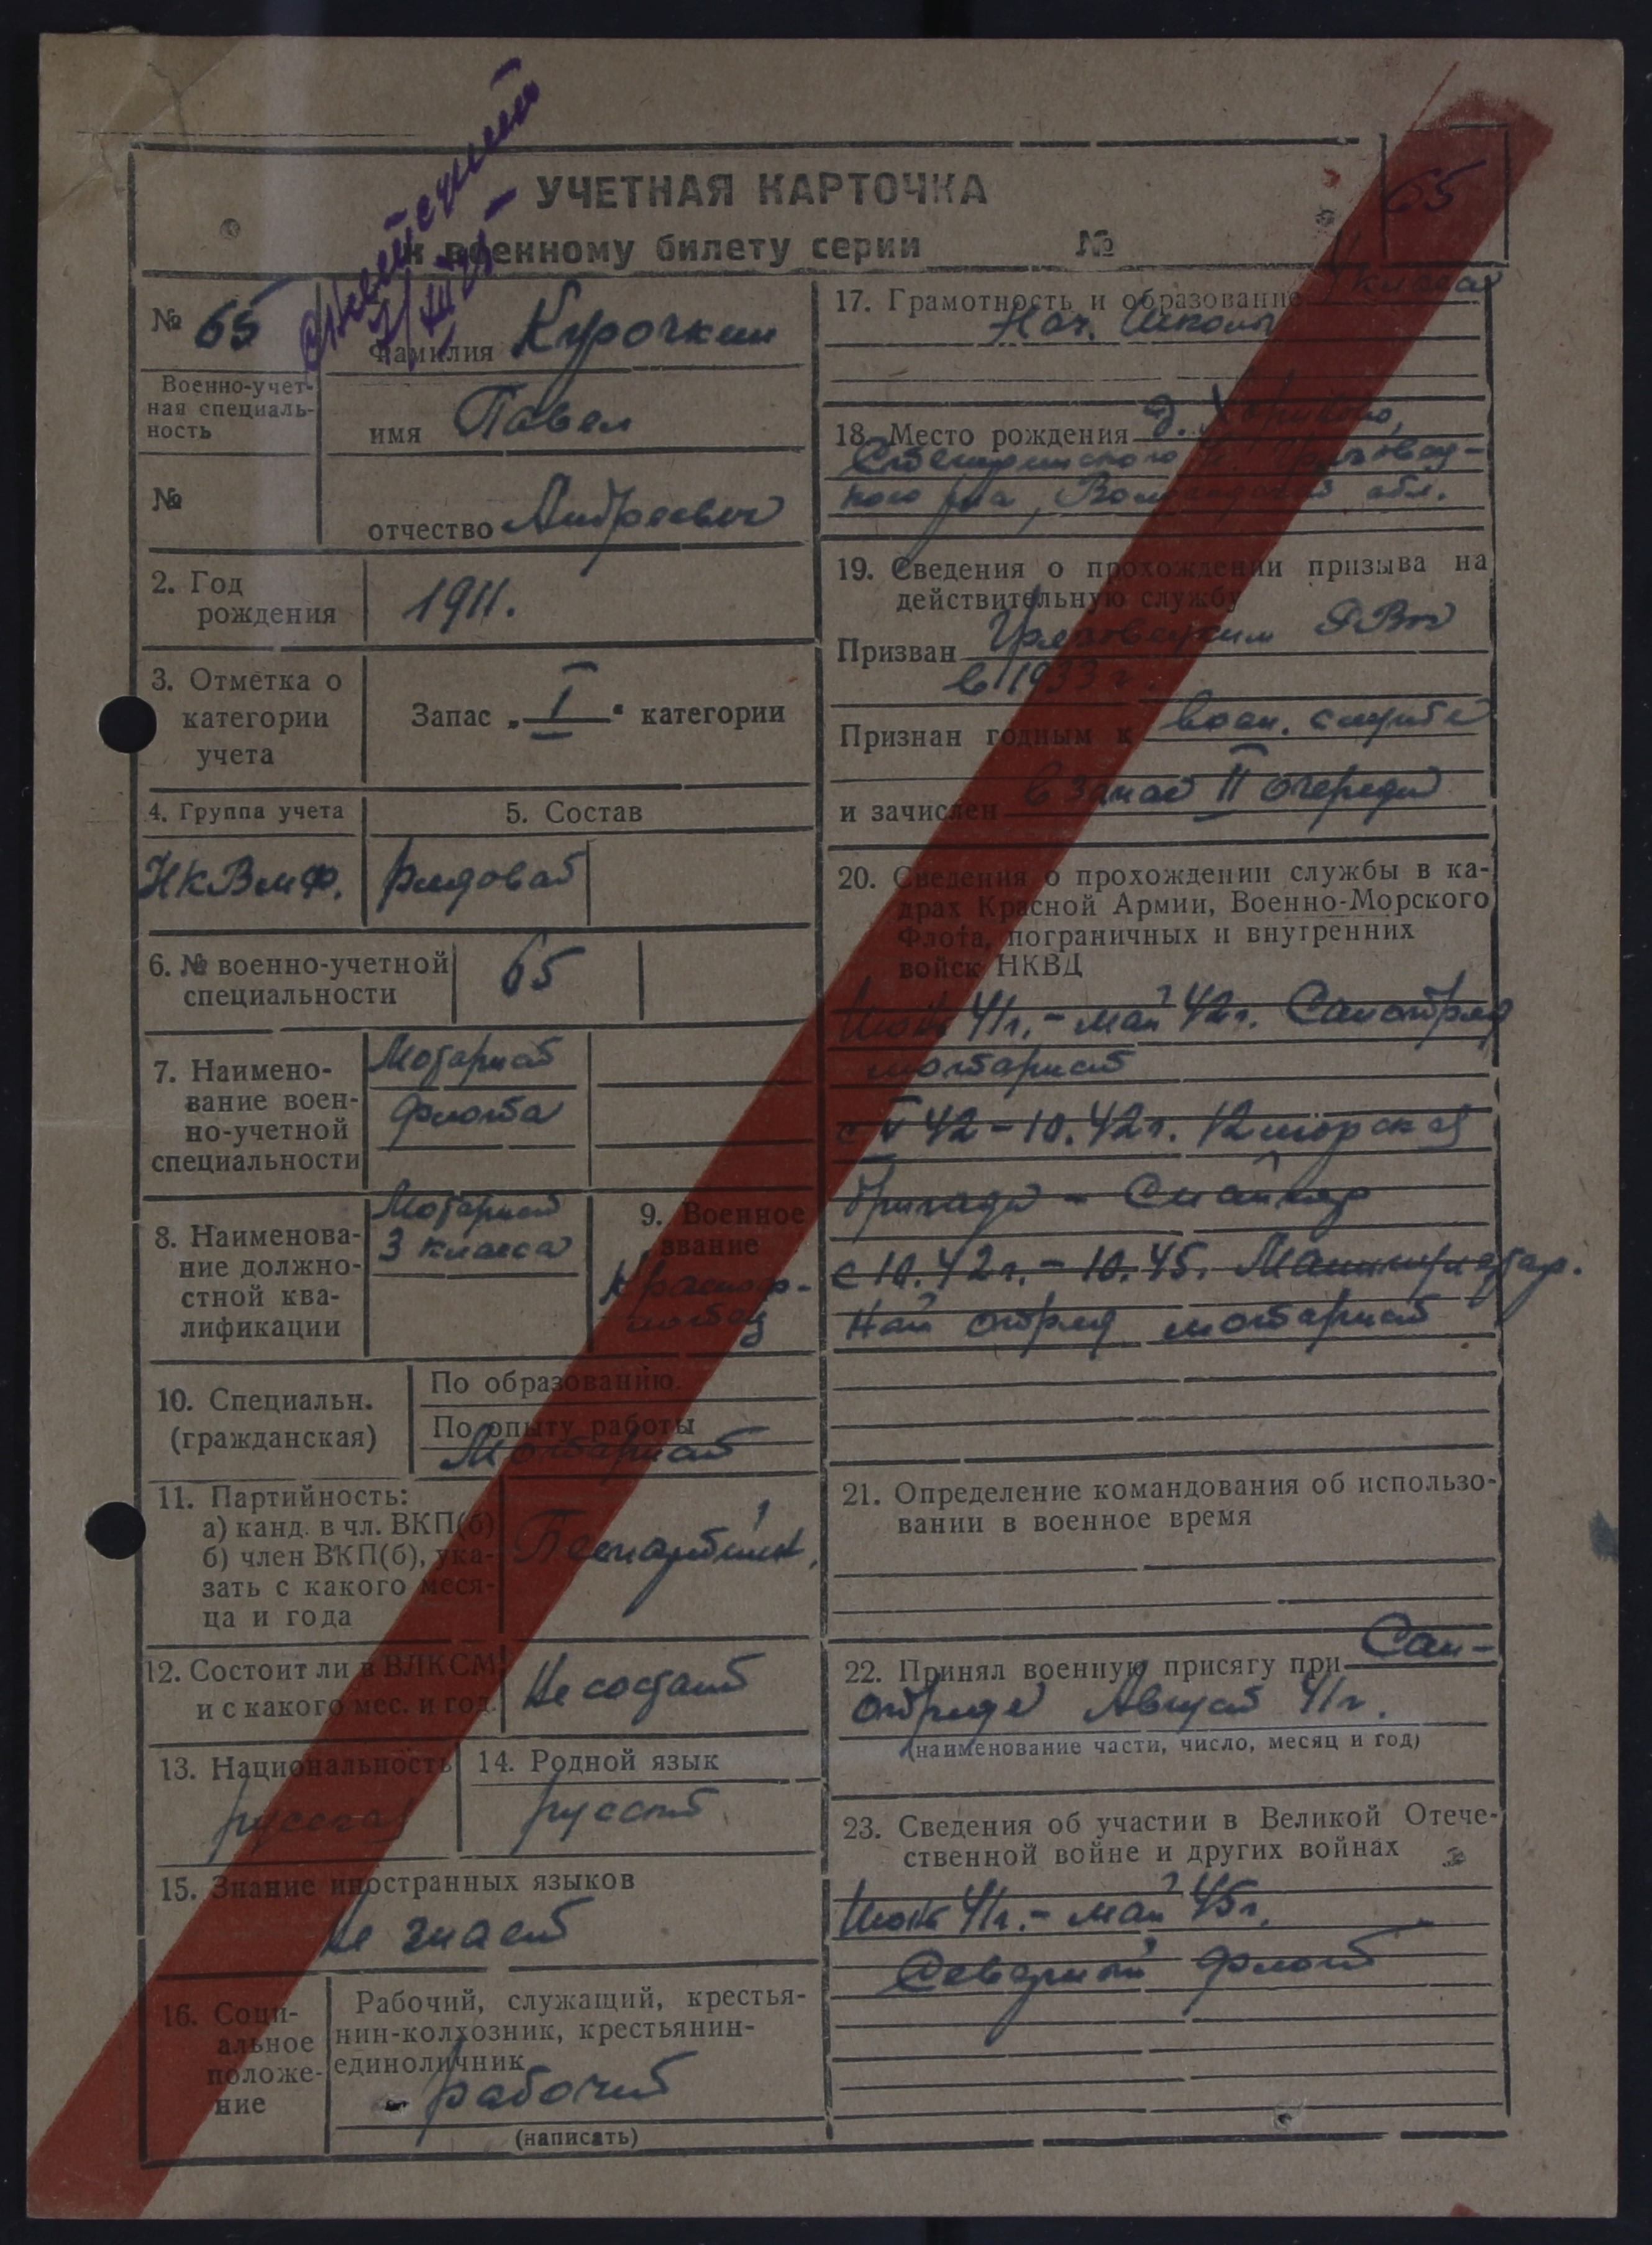 УЧЕТНАЯ КАРТОЧКА
65
к военному билету серии №
№ 65
Фамилия Курочкин
Военно-учет-
ная специаль-
ность
имя Павел
№
отчество Андреевич
2. Год
рождения
1911.
3. Отметка о
категории
учета
Запас „I“ категории
4. Группа учета
5. Состав
НКВмФ.
рядовой
6. № военно-учетной
специальности
65
7. Наимено-
вание воен-
но-учетной
специальности
Моторист
Флота
8. Наименова-
ние должно-
стной ква-
лификации
Моторист
3 класса
9. Военное
звание
Красноф-
лотец
10. Специальн.
(гражданская)
По образованию
По опыту работы
Моторист
11. Партийность:
а) канд. в чл. ВКП(б)
б) член ВКП(б), ука-
зать с какого меся-
ца и года
12. Состоит ли в ВЛКСМ
и с какого мес. и год.
Не состоит
13. Национальность
русский
14. Родной язык
русский
15. Знание иностранных языков
не знает
16. Соци-
альное
положе-
ние
Рабочий, служащий, крестья-
нин-колхозник, крестьянин-
единоличник
рабочий
(написать)
17. Грамотность и образование класса
Нач. Школы
18. Место рождения д.
кого р-на, Вологодской обл.
19. Сведения о прохождении призыва на
действительную службу
Призван Грязовецким РВК
в 1933 г.
Признан годным к воен. службе
и зачислен в запас II очереди
20. Сведения о прохождении службы в ка-
драх Красной Армии, Военно-Морского
Флота, пограничных и внутренних
войск НКВД
41г. - май 42г. Саnотряд
моторист
с V 42 - 10.42г. 12 морская
бригада - Снайпер
с 10.42г. - 10.45.
ный отряд моторист
21. Определение командования об использо-
вании в военное время
22. Принял военную присягу при Сан-
отряде Август 41г.
(наименование части, число, месяц и год)
23. Сведения об участии в Великой Отече-
ственной войне и других войнах
41г. - май 45г.
Северный флот